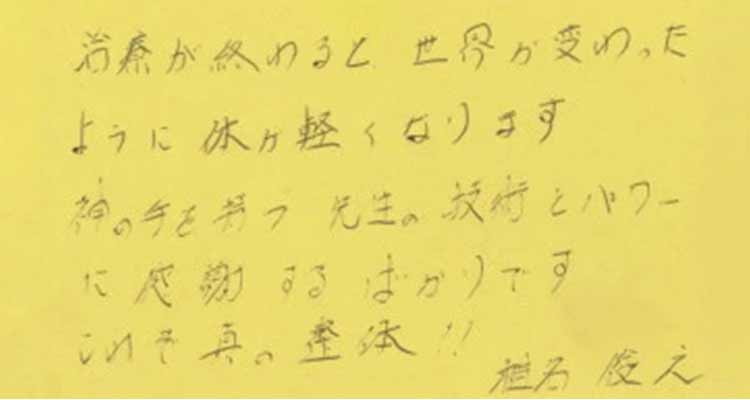 治療が終わると 世界が変わった
ように 体が軽くなります
神の手を持つ 先生の 技術とパワー
に 感謝するばかりです
これぞ真の整体!!
椎名 俊之